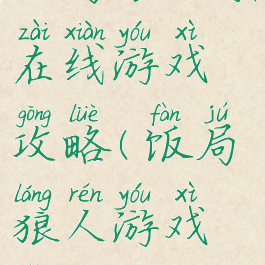 zài xiàn yóu xì
在线游戏
gōng lüè fàn jú
攻略(饭局
láng rén yóu xì
狼人游戏